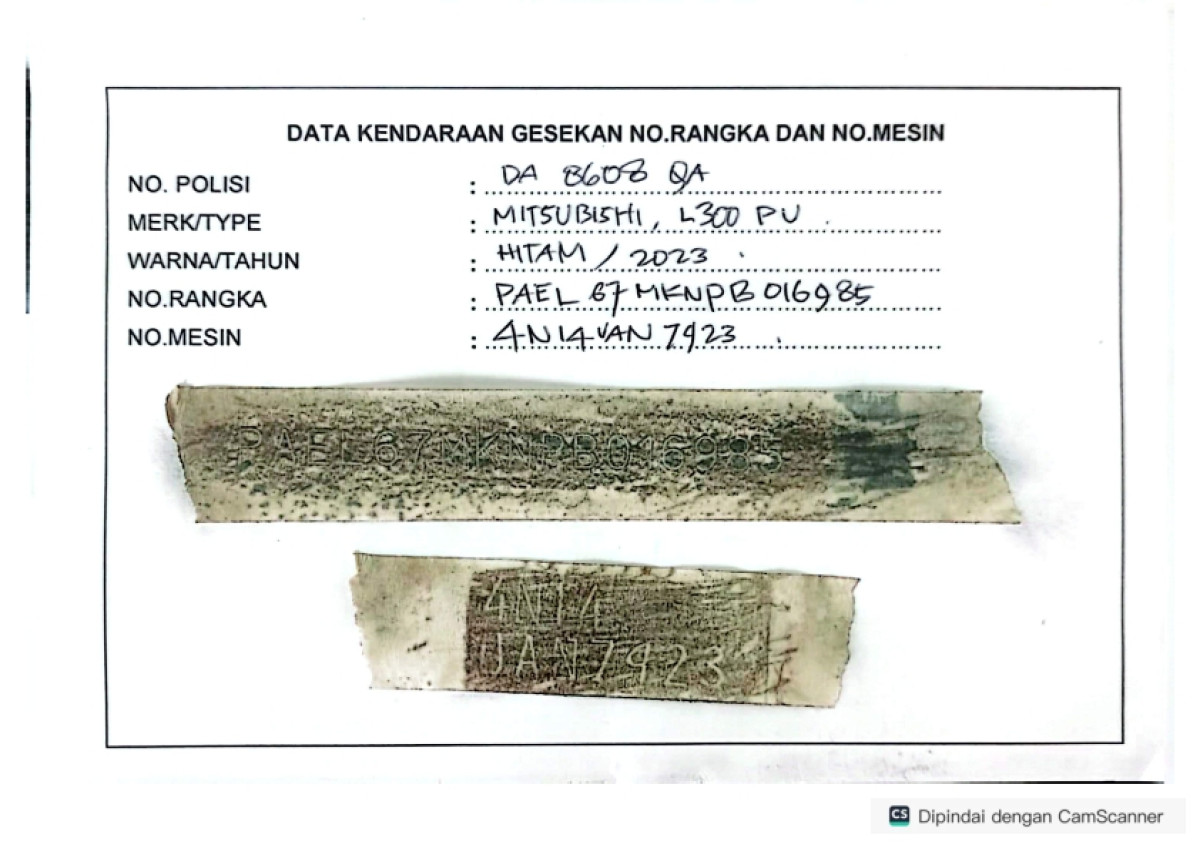 DATA KENDARAAN GESEKAN NO.RANGKA DAN NO.MESIN
NO. POLISI : DA 8608 QA
MERK/TYPE : MITSUBISHI, L300 PU
WARNA/TAHUN : HITAM / 2023
NO.RANGKA : PAEL67MKNPB016985
NO.MESIN : 4N14UAN7923
PAEL67MKNPB016985
4N14
UAN7923
CS Dipindai dengan CamScanner